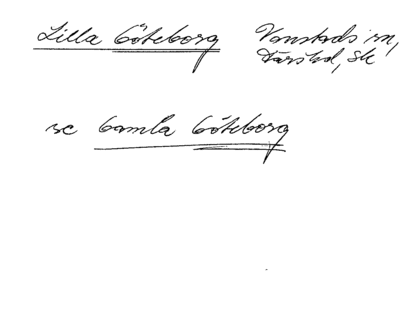 Lilla Göteborg Vanstads sn,
Färs hd, Sk
se Gamla Göteborg